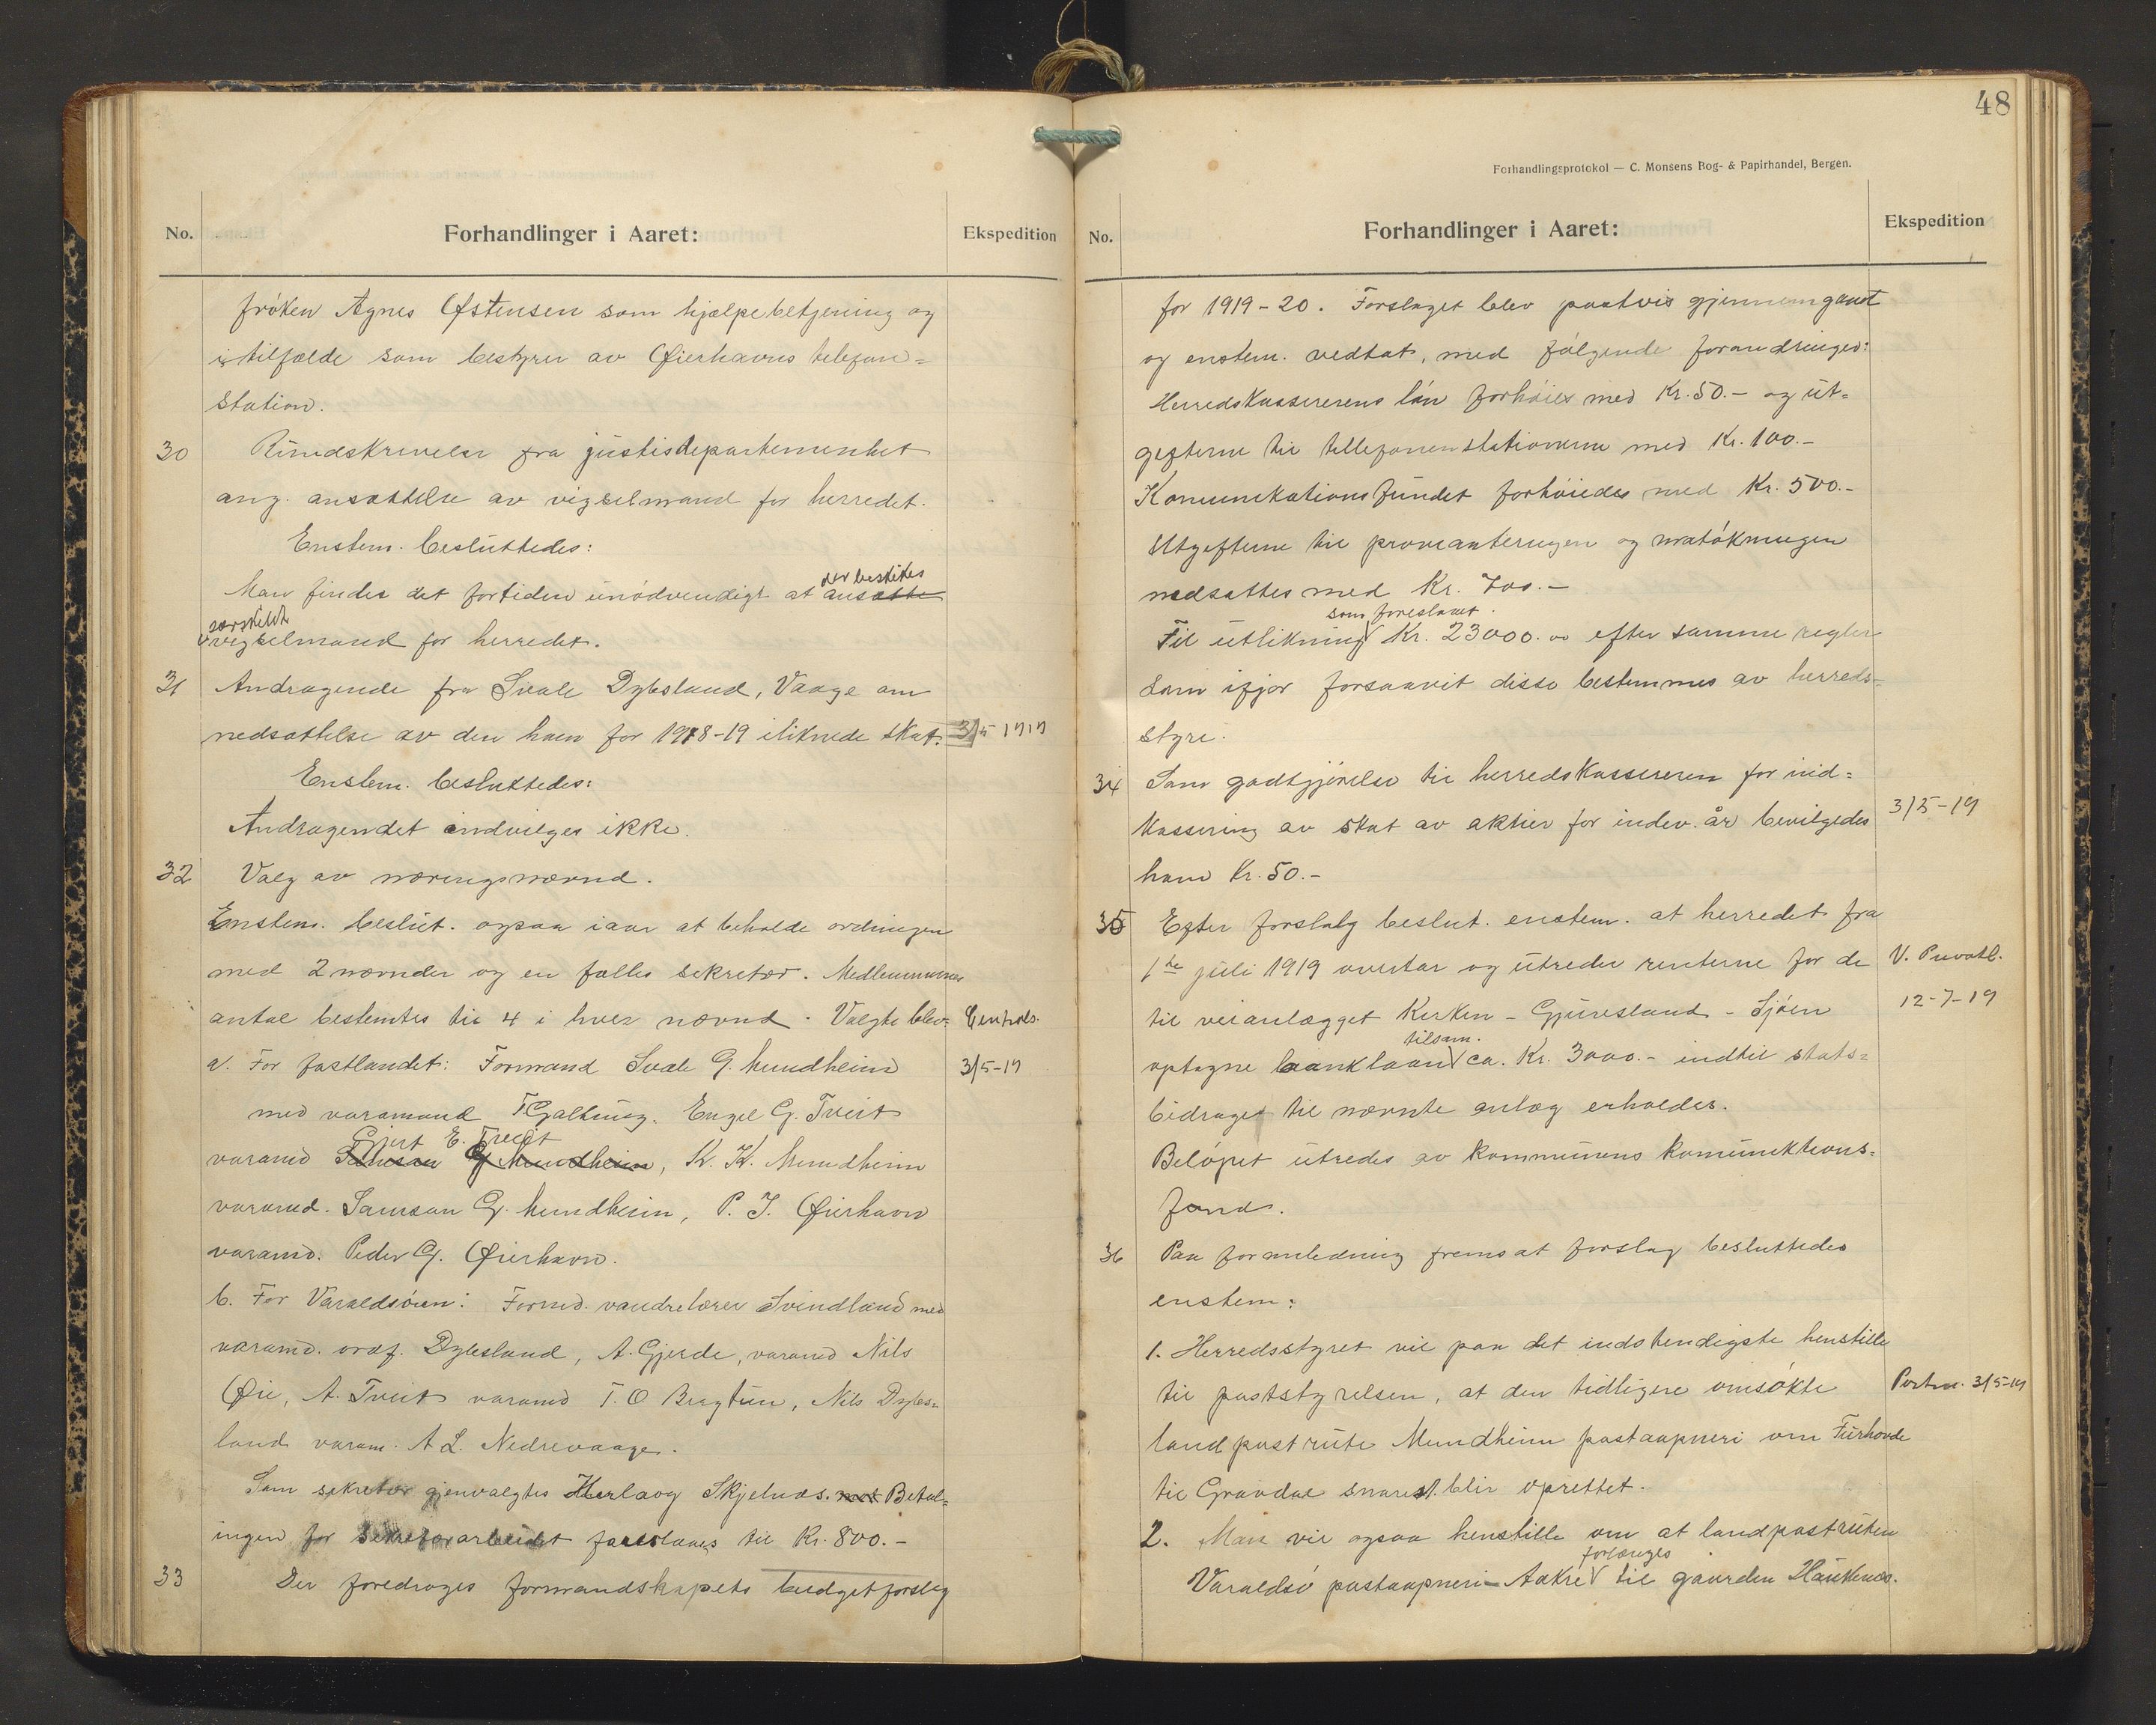 No.
Forhandlinger i Aaret:
Ekspedition
frøken Agnes Østensen som hjælpebetjening og
i tilfælde som bestyrer av Øierhavns telefon=
station.
30 Rundskrivelse fra justisdepartementet
ang. ansættelse av vigselmand for herredet.
Enstem. besluttedes:
der beskikes
Man finder det fortiden unødvendigt at ansætte
særskildt
vigselmand for herredet.
31 Andragende fra Svale Dybsland, Vaage om
nedsættelse av den ham for 1918-19 iliknede skat. 3/5 1919
Enstem. besluttedes:
Andragendet indvilges ikke.
32 Valg av næringsnævnd.
Enstem. beslut. ogsaa iaar at beholde ordningen
med 2 nævnder og en fælles sekretær. Medlemmernes
antal bestemtes til 4 i hver nævnd. Valgte blev: Centrals.
a. For fastlandet: Formand Svale G. Mundheim 3/5-19
med varamand T Galtung. Engel G. Tveit
Gjert E. Tveit
varamd Samson G Mundheim, K. K. Mundheim
varamd. Samson G. Mundheim, P. J. Øierhavn
varamd. Peder G. Øierhavn.
b. For Varaldsøen: Formd. vandrelærer Svindland med
varamd. ordf. Dybsland, A. Gjerde, varamd Nils
Øie, A. Tveit varamd T. O Bergtun, Nils Dybs=
land varam. A L. Nedrevaage.
Som sekretær gjenvalgtes Herlaog Skjelnæs. mot Betal=
ingen for sekretærarbeidet foreslaaes til Kr. 800.-
33 Der foredroges formandskapets budgetforslag
48
Forhandlingsprotokol — C. Monsens Bog- & Papirhandel, Bergen.
No.
Forhandlinger i Aaret:
Ekspedition
for 1919-20. Forslaget blev postvis gjennemgaat
og enstem. vedtat, med følgende forandringer:
Herredskassererens løn forhøies med Kr. 50.- og ut=
gifterne til tellefonenstationerne med Kr. 100.-
Komunikationsfundet forhøiedes med Kr. 500.-
Utgifterne til provianteringen og matøkningen
nedsattes med Kr. 700.-
som foreslaaet.
Til utlikning Kr. 23000.00 efter samme regler
som ifjor forsaavit disse bestemmes av herreds=
styre.
34 Som godtgjørelse til herredskassereren for ind=
kassering av skat av aktier for indev. år bevilgedes 3/5-19
ham Kr. 50.-
35 Efter forslalg beslut. enstem. at herredet fra
1ste juli 1919 overtar og utreder renterne for de V. Privatl.
til veianlægget Kirken - Gjuvsland - Sjøen 12-7-19
tilsam.
optagne banklaan ca. Kr. 3000.- indtil stats=
bidraget til nævnte anlæg erholdes.
Beløpet utredes av kommunens komuniktions=
fond.
36 Paa foranledning fremsat forslag besluttedes
enstem:
1. Herredsstyret vil paa det indstendigste henstille
til poststyrelsen, at den tidligere omsøkte Postm. 3/5-19
landpostrute Mundheim postaapneri om Furhovde
til Gravdal snarest blir oprettet.
2. Man vil ogsaa henstille om at landpostruten
forlænges
Varaldsø postaapneri - Aakre til gaarden Haukenæs.